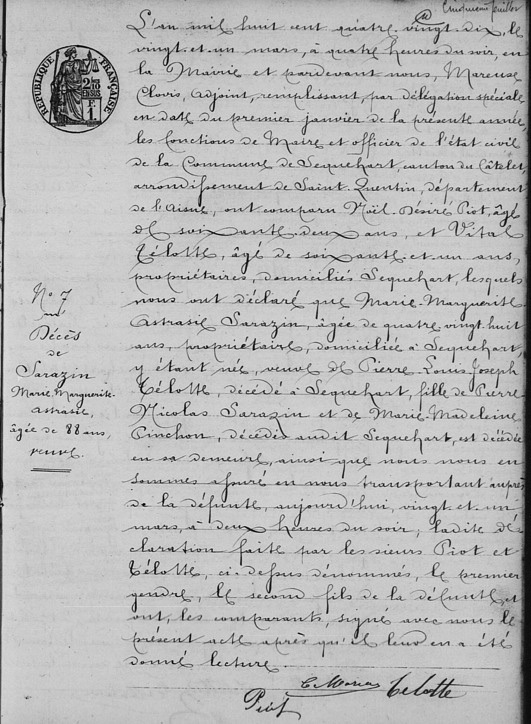 Cinquième feuillet
RÉPUBLIQUE FRANÇAISE
L'an mil huit cent quatre-vingt-dix, le
vingt-et-un mars, à quatre heures du soir, en
la Mairie et pardevant nous, Mareuse
Clovis, Adjoint, remplissant, par délégation spéciale
en date du premier janvier de la présente année
les fonctions de Maire et officier de l'état civil
de la Commune de Sequehart, canton du Câtelet,
arrondissement de Saint-Quentin, département
de l'Aisne, ont comparu Noël-Désiré Piot, âgé
de soixante-deux ans, et Vital
Télotte, âgé de soixante et un ans,
propriétaires, domiciliés Sequehart, lesquels
nous ont déclaré que Marie-Marguerite
Astrasie Sarazin, âgée de quatre-vingt-huit
ans, propriétaire, domiciliée à Sequehart,
y étant née, veuve de Pierre-Louis-Joseph
Télotte, décédé à Sequehart, fille de Pierre-
Nicolas Sarazin et de Marie-Madeleine
Pinchon, décédés audit Sequehart, est décédée
en sa demeure, ainsi que nous nous en
sommes assuré en nous transportant auprès
de la défunte, aujourd'hui, vingt-et-un
mars, à deux heures du soir, ladite dé-
claration faite par les sieurs Piot et
Télotte, ci-dessus dénommés, le premier
gendre, le second fils de la défunte, et
ont, les comparants, signé avec nous le
présent acte après qu'il leur en a été
donné lecture.
Piot
Telotte
N° 7
Décès
de
Sarazin
Marie-Marguerite-
Astrasie,
âgée de 88 ans,
veuve.